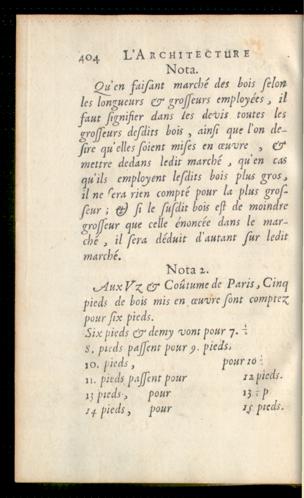 404 L'ARCHITECTURE
Nota.
Qu'en faiſant marché des bois ſelon
les longueurs & groſſeurs employées, il
faut ſignifier dans les devis toutes les
groſſeurs deſdits bois, ainſi que l'on de-
ſire qu'elles ſoient miſes en œuvre, &
mettre dedans ledit marché, qu'en cas
qu'ils employent leſdits bois plus gros,
il ne ſera rien compté pour la plus groſ-
ſeur; & ſi le ſuſdit bois eſt de moindre
groſſeur que celle énoncée dans le mar-
ché, il ſera déduit d'autant ſur ledit
marché.
Nota 2.
Aux Vz & Coûtume de Paris, Cinq
pieds de bois mis en œuvre ſont comptez
pour ſix pieds.
Six pieds & demy vont pour 7.
8. pieds paſſent pour 9. pieds.
10. pieds, pour 10
11. pieds paſſent pour 12 pieds.
13 pieds, pour 13 p
14 pieds, pour 15 pieds.